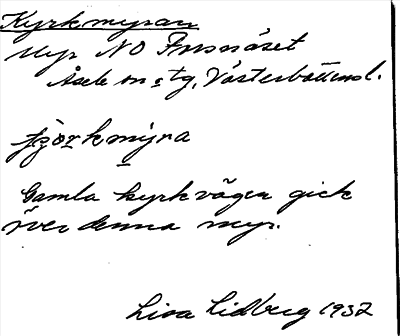 Kyrkmyran
Myr NO Insnäset
Åsele sn o tg, Västerbottens l.
Gamla kyrkvägen gick
över denna myr.
Lisa Lidberg 1932